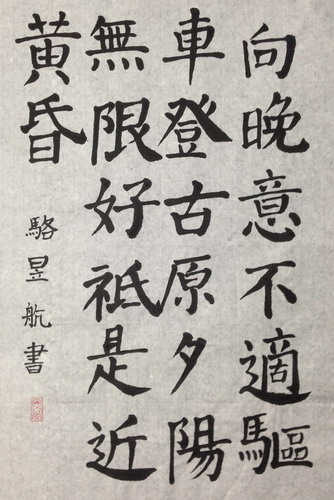 向晚意不適驅
車登古原夕陽
無限好祗是近
黃昏
駱昱航書